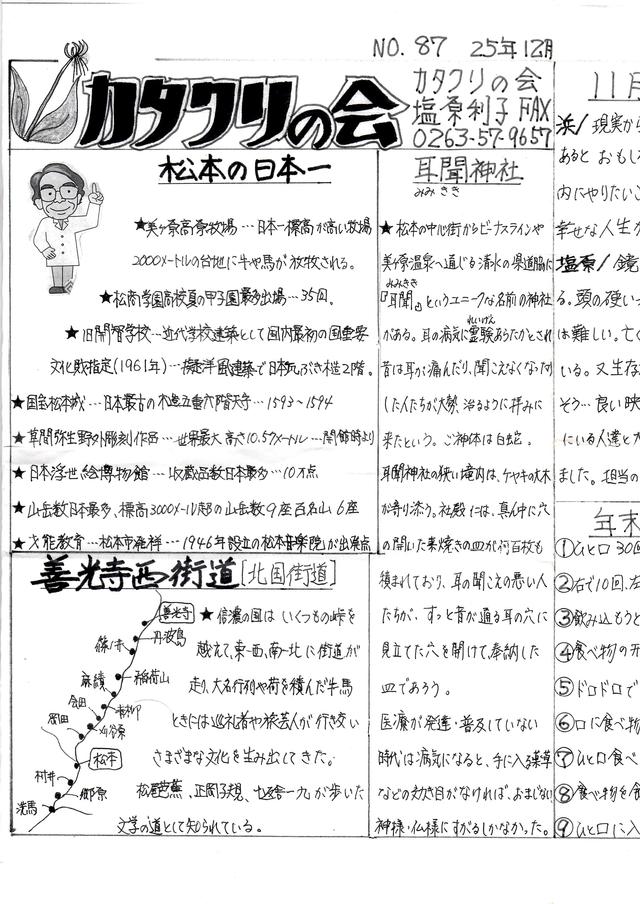 NO. 87 25年12月
カタクリの会
カタクリの会
塩原利子 FAX
0263-57-9657
松本の日本一
★美ヶ原高原牧場…日本一標高が高い牧場
2000メートルの台地に牛や馬が放牧される。
★松商学園高校夏の甲子園最多出場…35回。
★旧開智学校…近代学校建築として国内最初の国重要
文化財指定(1961年)…擬洋風建築で日本瓦ぶき木造2階。
★国宝松本城…日本最古の木造五重六階天守…1593〜1594
★草間弥生野外彫刻作品…世界最大 高さ10.57メートル…開館時より
★日本浮世絵博物館…収蔵品数日本最多…10万点
★山岳数日本最多、標高3000メートル超の山岳数9座百名山6座
★才能教育…松本市発祥…1946年設立の松本音楽院が出発点
耳聞神社
みみ きき
★松本の中心街からビーナスラインや
美ヶ原温泉へ通じる清水の県道脇に
みみきき
『耳聞』というユニークな名前の神社
れいげん
がある。耳の病気に霊験あらたかとされ
昔は耳が痛んだり、聞こえなくなったり
した人たちが大勢、治るように拝みに
来たという。ご神体は白蛇。
耳聞神社の狭い境内は、ケヤキの大木
が寄り添う。社殿には、真ん中に穴
の開いた素焼きの皿が何百枚も
積まれており、耳の聞こえの悪い人
たちが、すっと音が通る耳の穴に
見立てた穴を開けて、奉納した
皿であろう。
医療が発達・普及していない
時代は病気になると、手に入る薬草
などの効き目がなければ、おまじない
神様・仏様にすがるしかなかった。
善光寺西街道[北国街道]
善光寺
丹波島
篠ノ井
稲荷山
麻績
青柳
会田
刈谷原
岡田
松本
村井
郷原
洗馬
★信濃の国は いくつもの峠を
越えて、東-西、南-北に街道が
走り、大名行列や荷を積んだ牛馬
ときには巡礼者や旅芸人が行き交い
さまざまな文化を生み出してきた。
松尾芭蕉、正岡子規、十返舎一九が歩いた
文学の道として知られている。
11月
浜/現実から
あると おもし
内にやりたいこ
幸せな人生か
塩原/鏡
る。頭の硬い
は難しい。亡く
いる。又生存
そう…良い映
にいる人達と
ました。担当の
年末
①ひと口30回
②右で10回、左
③飲み込もうと
④食べ物の形
⑤ドロドロで
⑥口に食べ物
⑦ひと口食べ
⑧食べ物を食
⑨ひと口に入